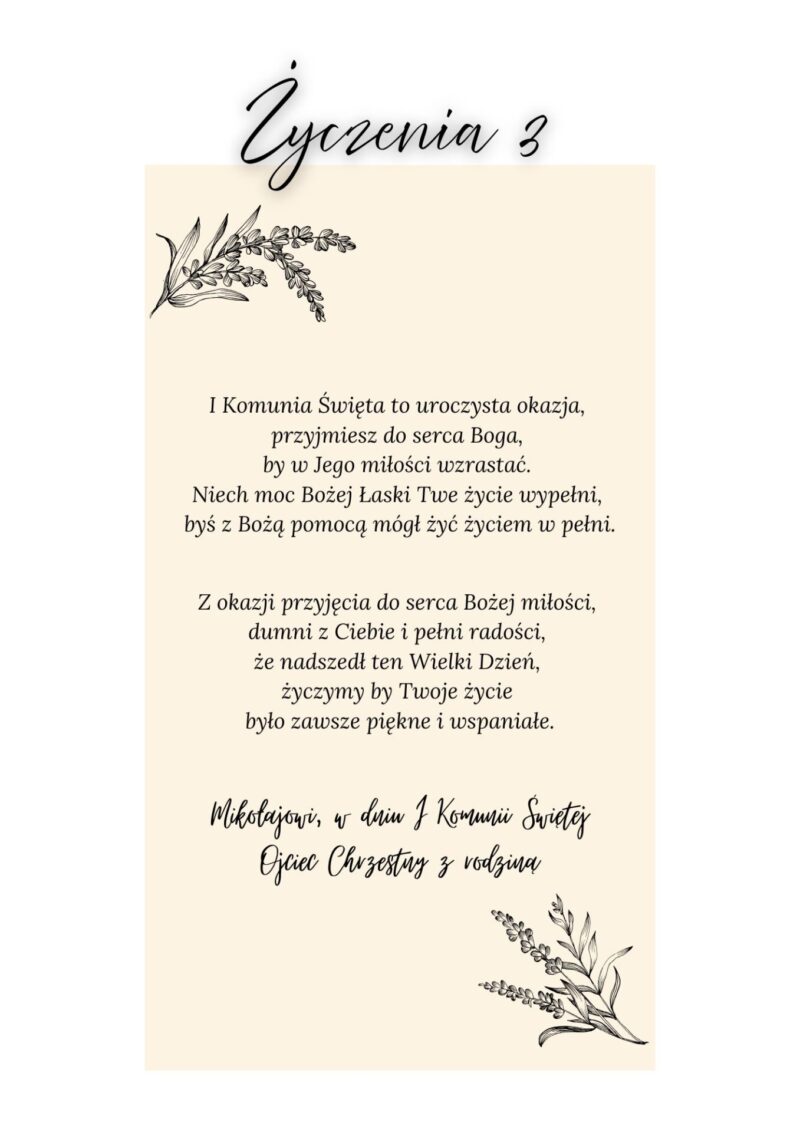 Życzenia 3
I Komunia Święta to uroczysta okazja,
przyjmiesz do serca Boga,
by w Jego miłości wzrastać.
Niech moc Bożej Łaski Twe życie wypełni,
byś z Bożą pomocą mógł żyć życiem w pełni.
Z okazji przyjęcia do serca Bożej miłości,
dumni z Ciebie i pełni radości,
że nadszedł ten Wielki Dzień,
życzymy by Twoje życie
było zawsze piękne i wspaniałe.
Mikołajowi, w dniu I Komunii Świętej
Ojciec Chrzestny z rodziną